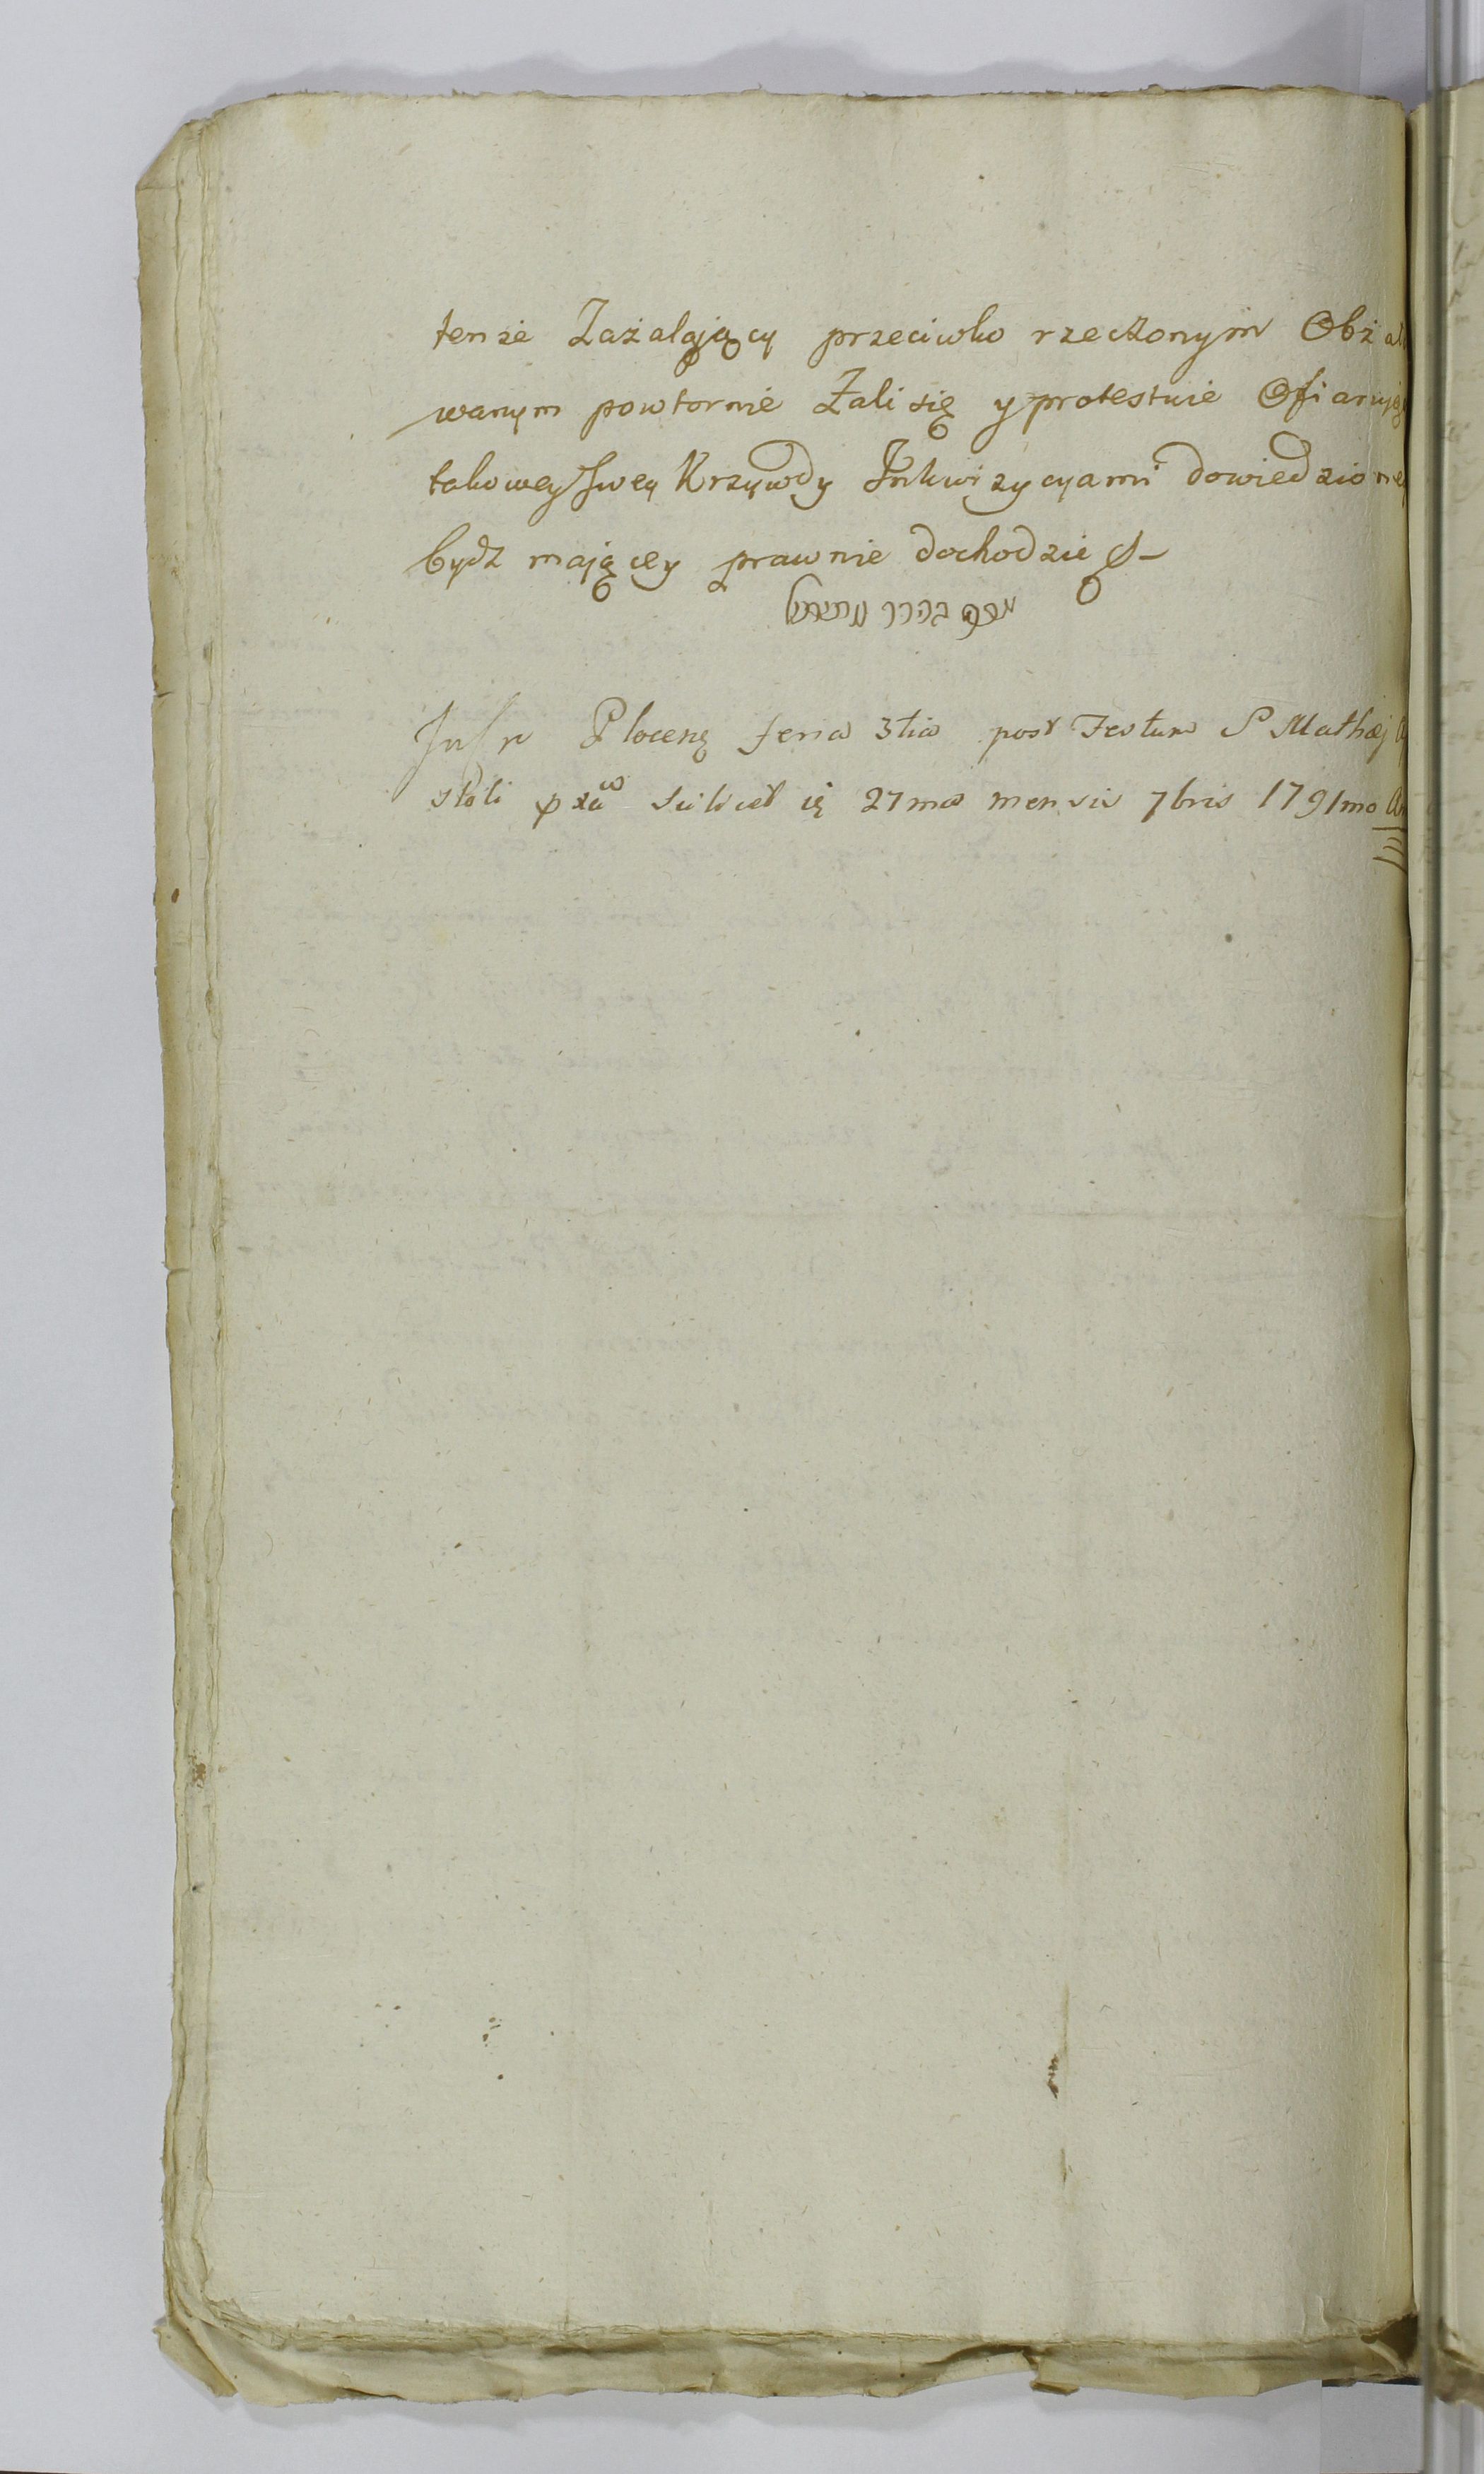 tenże Zażalający przeciwko rzeczonym Obżalo
wanym powtornie Żali się y protestuie Ofiaruiąc
takowey swey Krzywdy Inkwizycyami dowiedzioney
bydz maiącey prawnie dochodzić
Plocens feria 3tia post Festum S Mathæj
stoli scilicet 27ma mensis 7bris 1791mo